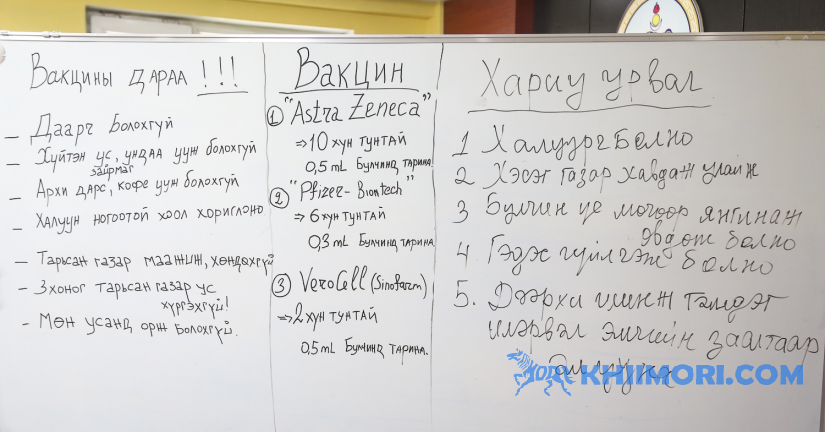 Вакцины дараа !!!
– Даарч Болохгүй
– Хүйтэн ус, ундаа ууж болохгүй
зайрмаг
– Архи дарс, кофе ууж болохгүй
– Халуун ногоотой хоол хориглоно
– Тарьсан газар маажиж, хөндөхгүй
– 3 хоног тарьсан газар ус
хүргэхгүй!
– Мөн усанд орж болохгүй.
Вакцин
① "Astra Zeneca"
⇒ 10 хүн тунтай
0,5 mL Булчинд тарина.
② "Pfizer-Biontech"
⇒ 6 хүн тунтай
0,3 mL Булчинд тарина.
③ VeroCell (Sinofarm)
⇒ 2 хүн тунтай
0,5 mL Булчинд тарина.
Хариу урвал
1 Халуурч Болно
2 Хэсэг газар хавдаж улайж
3 Булчин үе мөчөөр янгинаж
өвдөж болно
4. Гэдэс гүйлгэж болно
5. Дээрхи шинж тэмдэг
илэрвэл эмчийн заалтаар
KHIIMORI.COM